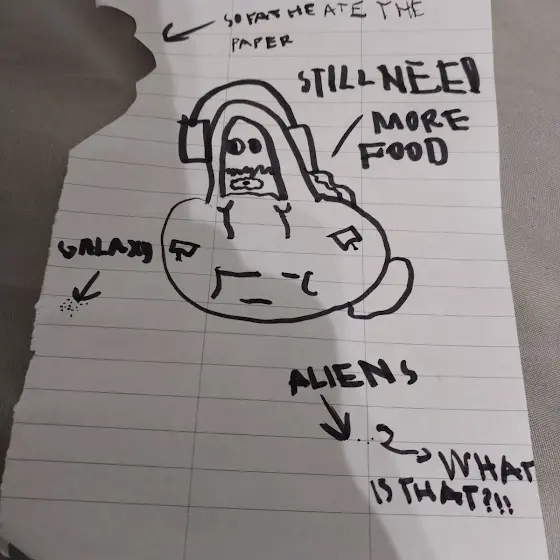 SO FAT HE ATE THE
PAPER
STILL NEED
MORE
FOOD
GALAXY
ALIENS
WHAT
IS THAT?!!